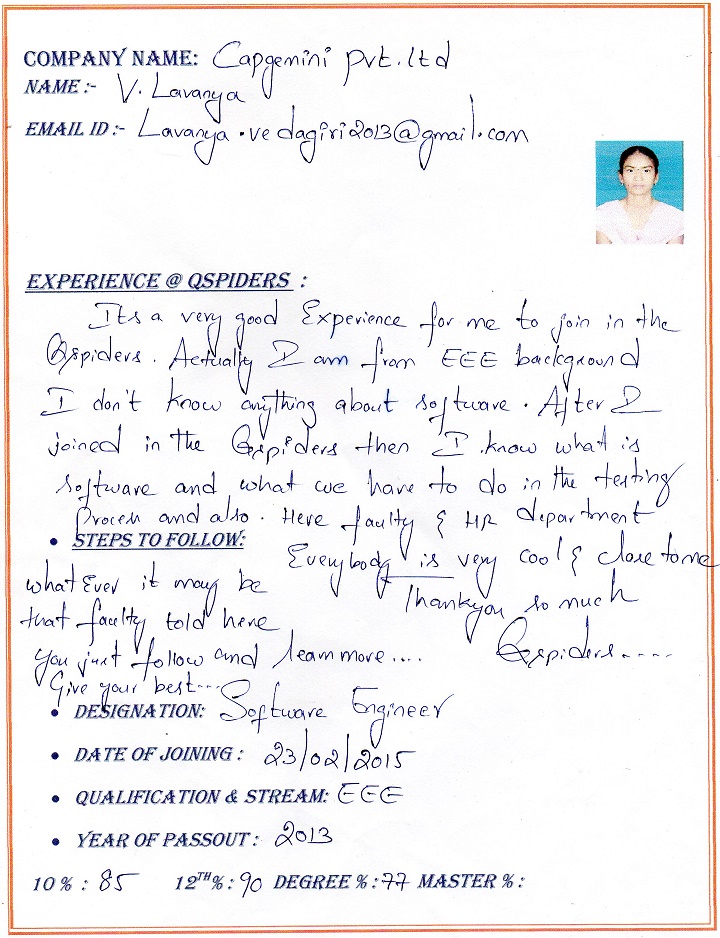 COMPANY NAME: Capgemini pvt.ltd
NAME :- V. Lavanya
EMAIL ID :- Lavanya.vedagiri2013@gmail.com
EXPERIENCE @ QSPIDERS :
Its a very good Experience for me to join in the
Qspiders. Actually I am from EEE background
I don't know anything about software. After I
joined in the Qspiders then I know what is
software and what we have to do in the testing
Process and also. Here faulty & HR department
Everybody is very cool & close to me
Thankyou so much
Qspiders.....
• STEPS TO FOLLOW:
whatEver it may be
that faculty told here
You just follow and learn more....
Give your best...
• DESIGNATION: Software Engineer
• DATE OF JOINING : 23/02/2015
• QUALIFICATION & STREAM: EEE
• YEAR OF PASSOUT : 2013
10 % : 85 12TH% : 90 DEGREE % : 77 MASTER % :